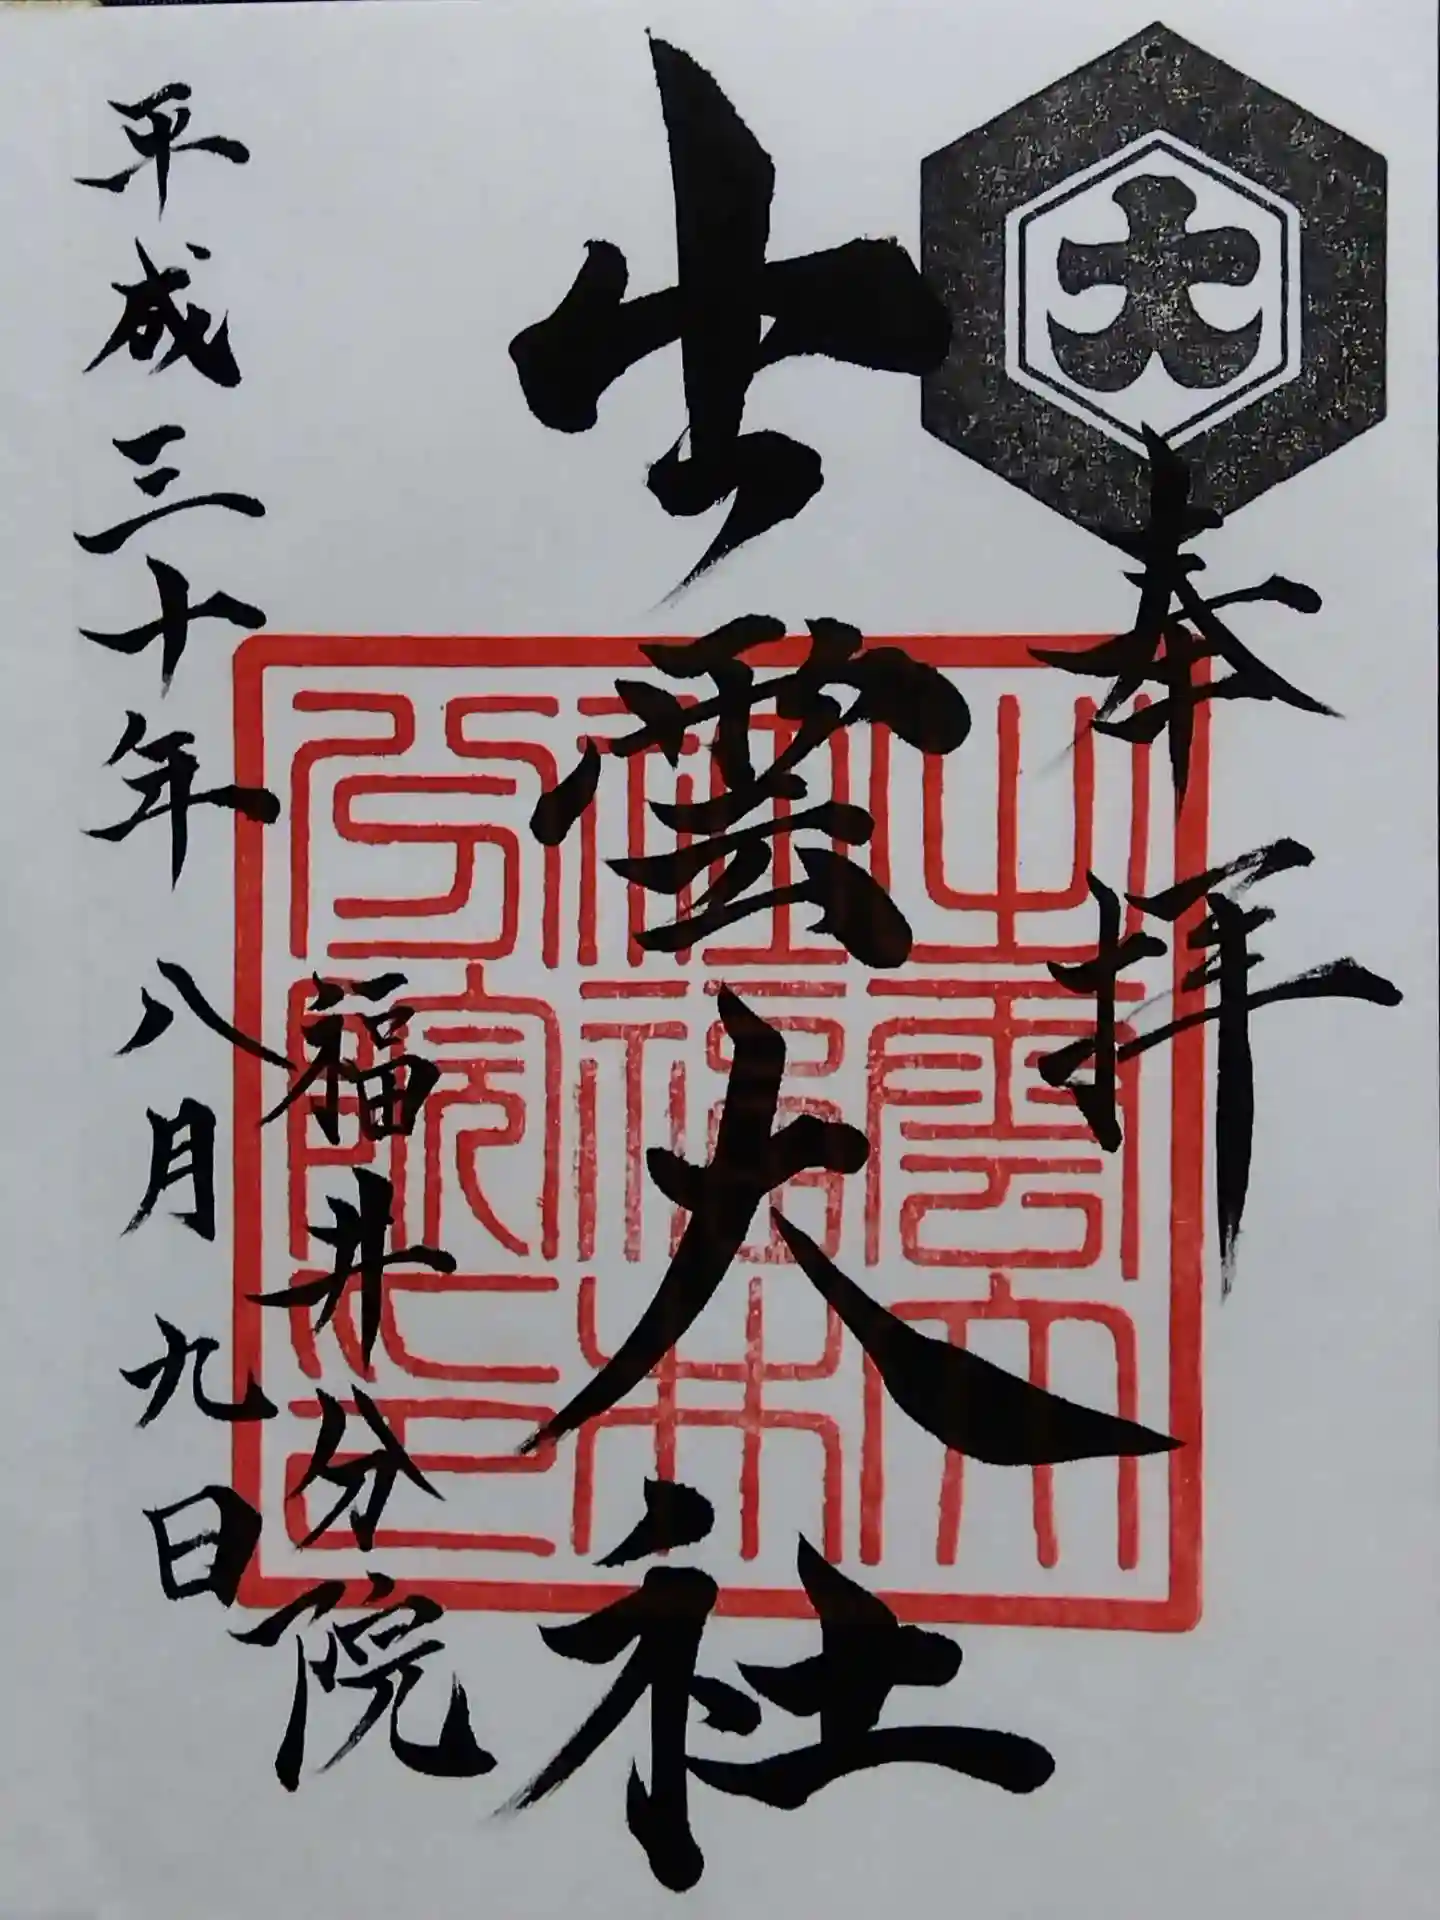 大
奉拝
出雲大社
福井分院
平成三十年八月九日
出雲大
社福井
分院之印